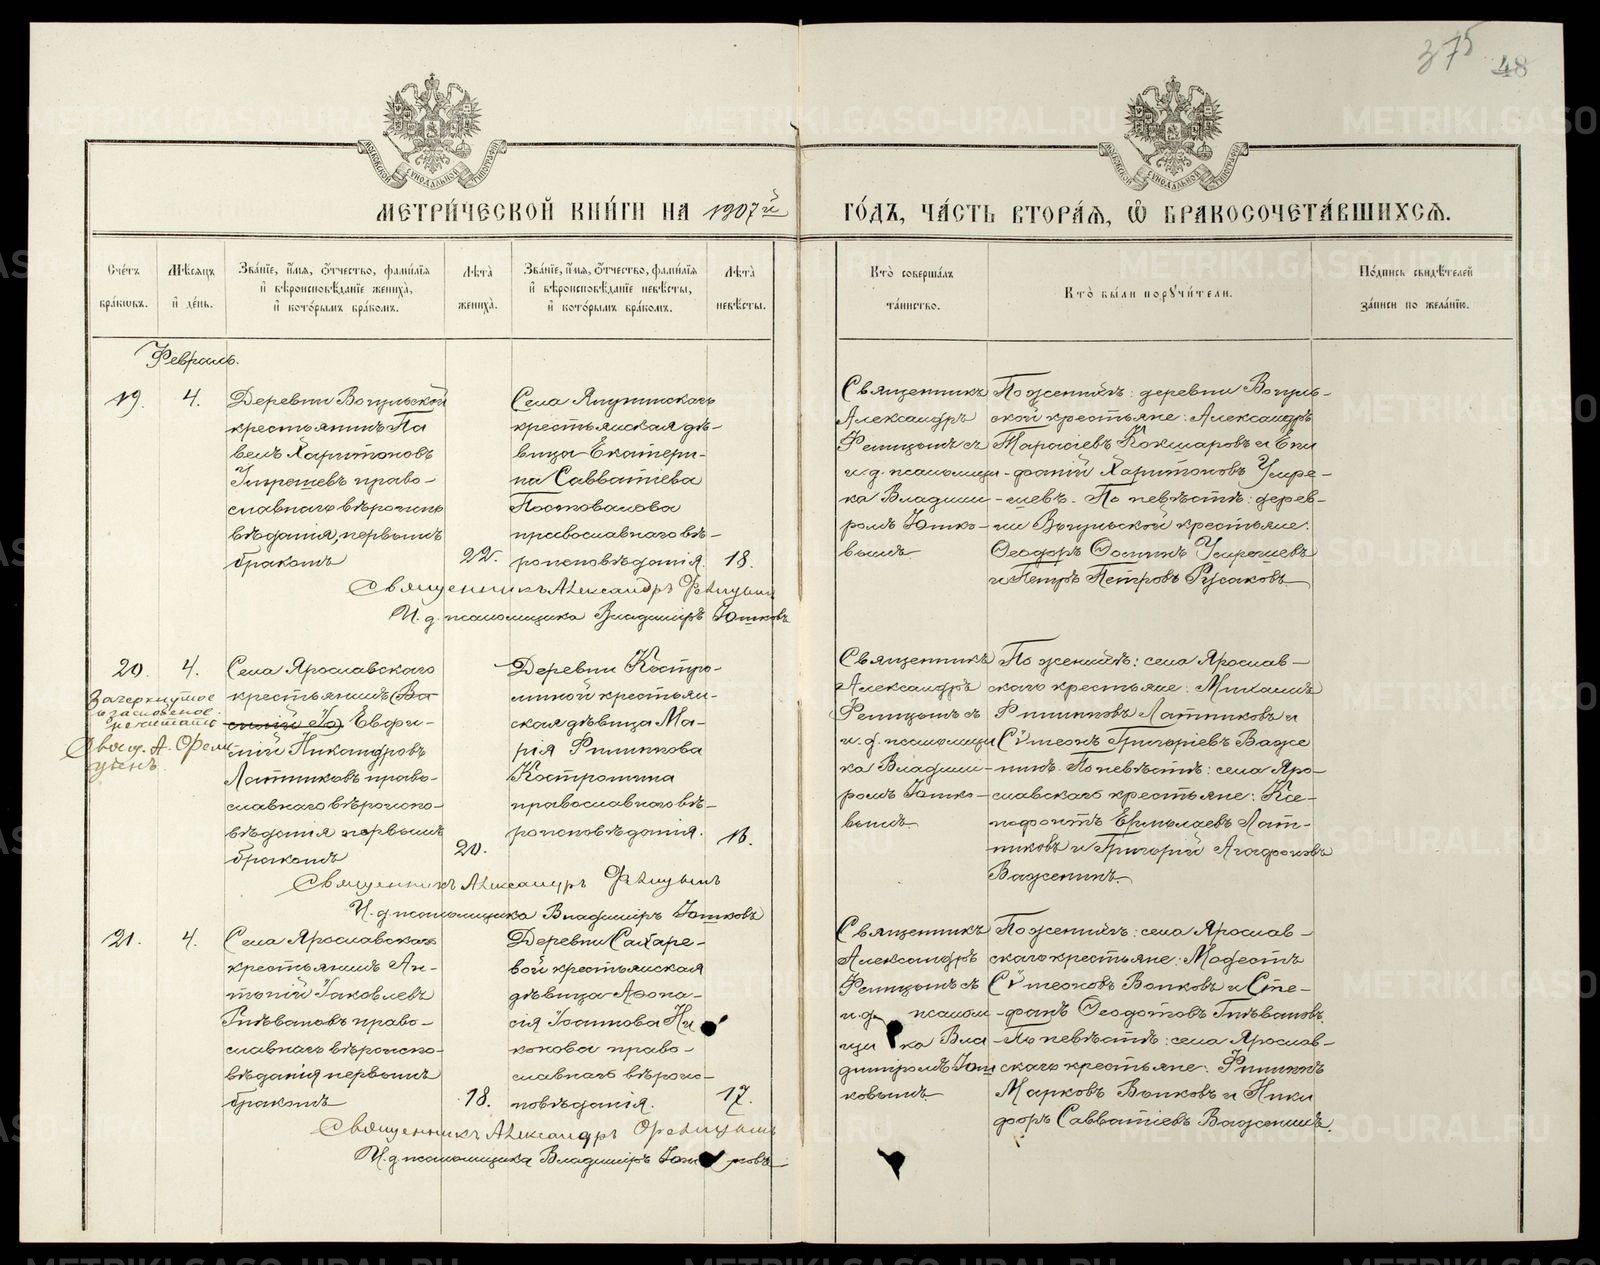 375
48
МЕТРИ́ЧЕСКОЙ КНИ́ГИ НА 1907 й
ГО́ДЪ, ЧА́СТЬ ВТОРА́Ѧ, Ѡ҆ БРАКОСОЧЕТА́ВШИХСѦ.
Сче́тъ бра́кѡвъ.
Мѣ́сѧцъ и҆ де́нь.
Зва́нїе, и҆́мѧ, ѻ҆́тчество, фамѝлїѧ и҆ вѣроисповѣ́данїе жениха̀, и҆ кото́рымъ бра́комъ.
Лѣ́та жениха̀.
Зва́нїе, и҆́мѧ, ѻ҆́тчество, фамѝлїѧ и҆ вѣроисповѣ́данїе невѣ́сты, и҆ кото́рымъ бра́комъ.
Лѣ́та невѣ́сты.
Кто̀ соверша́лъ та́инство.
Кто̀ бы́ли порꙋчи́тели.
По́дпись свидѣ́телей за́писи по жела́нїю.
Февраль.
19.
4.
Деревни Вогульской
крестьянинъ Па
велъ Харитоновъ
право-
славнаго вѣроиспо
вѣданія, первымъ
бракомъ
22.
Села
крестьянская дѣ-
вица Екатери-
на Савватіева
Постовалова
православнаго вѣ-
роисповѣданія.
18.
Священникъ
Александръ
и.д. псаломщи-
ка Владими-
ромъ Юшко-
вымъ
По женихѣ: деревни Вогуль-
ской крестьяне: Александръ
Тарасіевъ Кокшаровъ и Епи
-фаній Харитоновъ
По невѣстѣ: дерев-
ни Вогульской крестьяне:
Ѳеодоръ Осипинъ
и Петръ Петровъ Русаковъ
Священникъ Александръ
И. д. псаломщика Владиміръ Юшковъ
20.
4.
Зачеркнутое
не читать
Свящ. А.
Села Ярославскаго
крестьянинъ
Евфи-
мій Никандровъ
Латниковъ право-
славнаго вѣроиспо-
вѣданія первымъ
бракомъ
20.
Деревни Костро-
миной крестьян-
ская дѣвица Ма-
рія Филиппова
Костромина
православнаго вѣ-
роисповѣданія.
Священникъ
Александръ
и.д. псаломщи
ка Владими-
ромъ Юшко-
вымъ
По женихѣ: села Ярослав-
скаго крестьяне: Михаилъ
Филипповъ Латниковъ и
Сѵмеонъ Григоріевъ Важе
нинъ. По невѣстѣ: села Яро-
славскаго крестьяне: Ксе-
нофонтъ Ермолаевъ Лат-
никовъ и Григорій Агафоновъ
Важенинъ.
Священникъ Александръ
И. д. псаломщика Владиміръ Юшковъ
21.
4.
Села Ярославскаго
крестьянинъ Ан-
тоній Іаковлевъ
Гилѣвановъ право-
славнаго вѣроиспо-
вѣданія первымъ
бракомъ
18.
Деревни Сахаре-
вой крестьянская
дѣвица Аѳона-
сія Іоаннова Ни
конова право-
славнаго вѣроис-
повѣданія.
17.
Священникъ
Александръ
и.д. псалом-
щика Вла
диміромъ Юш
ковымъ
По женихѣ: села Ярослав-
скаго крестьяне: Модестъ
Сѵмеоновъ Волковъ и Сте-
-фанъ Ѳеодотовъ Гилѣвановъ.
По невѣстѣ: села Ярослав-
скаго крестьяне: Филиппъ
Марковъ Волковъ и Ники
форъ Савватіевъ Важенинъ.
Священникъ Александръ
И. д. псаломщика Владиміръ
METRIKI.GASO-URAL.RU